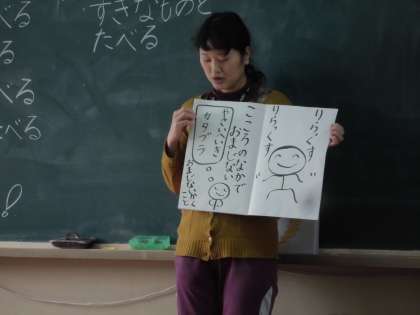 すきなものと
たべる
る
る
!
りらっくす
りらっくす
こころのなかで
おまじない
やさいへいき
カタブラ
おまじないかく
こと